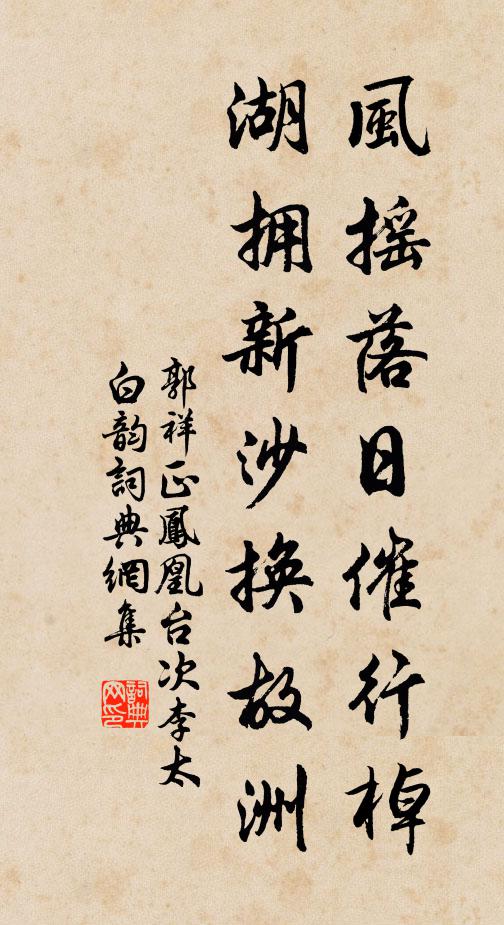 風摇落日催行棹
湖拥新沙換故洲
郭祥正鳳凰台次李太
白韵詞典網集
詞典网印